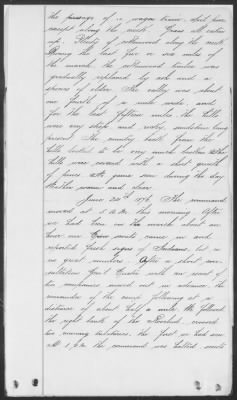 the passage of a wagon train, dirt here
except along the creek. Grass all eaten
up. Plenty of cottonwood along the creek
During the last five or six miles of
the march the cottonwood timber was
gradually replaced by ash and a
species of elder. The valley was about
one fourth of a mile wide, and
for the last fifteen miles the hills
were very steep and rocky, sandstone being
present. The country back from the
hills looked to be very much broken. The
hills were covered with a short growth
of pines. No game seen during the day
Weather warm and clear.
June 24th 1876. The command
moved at 5 a.m. this morning. After
we had been on the march about an
hour our Crow scouts came in and
reported fresh signs of Indians, but in
no great numbers. After a short con-
sultation Genl Custer with an escort of
two companies moved out in advance, the
remainder of the command following at a
distance of about half a mile. We followed
the right bank of the Rosebud, crossed
two running tributaries, the first we had seen
At 1 p.m. the command was halted scouts